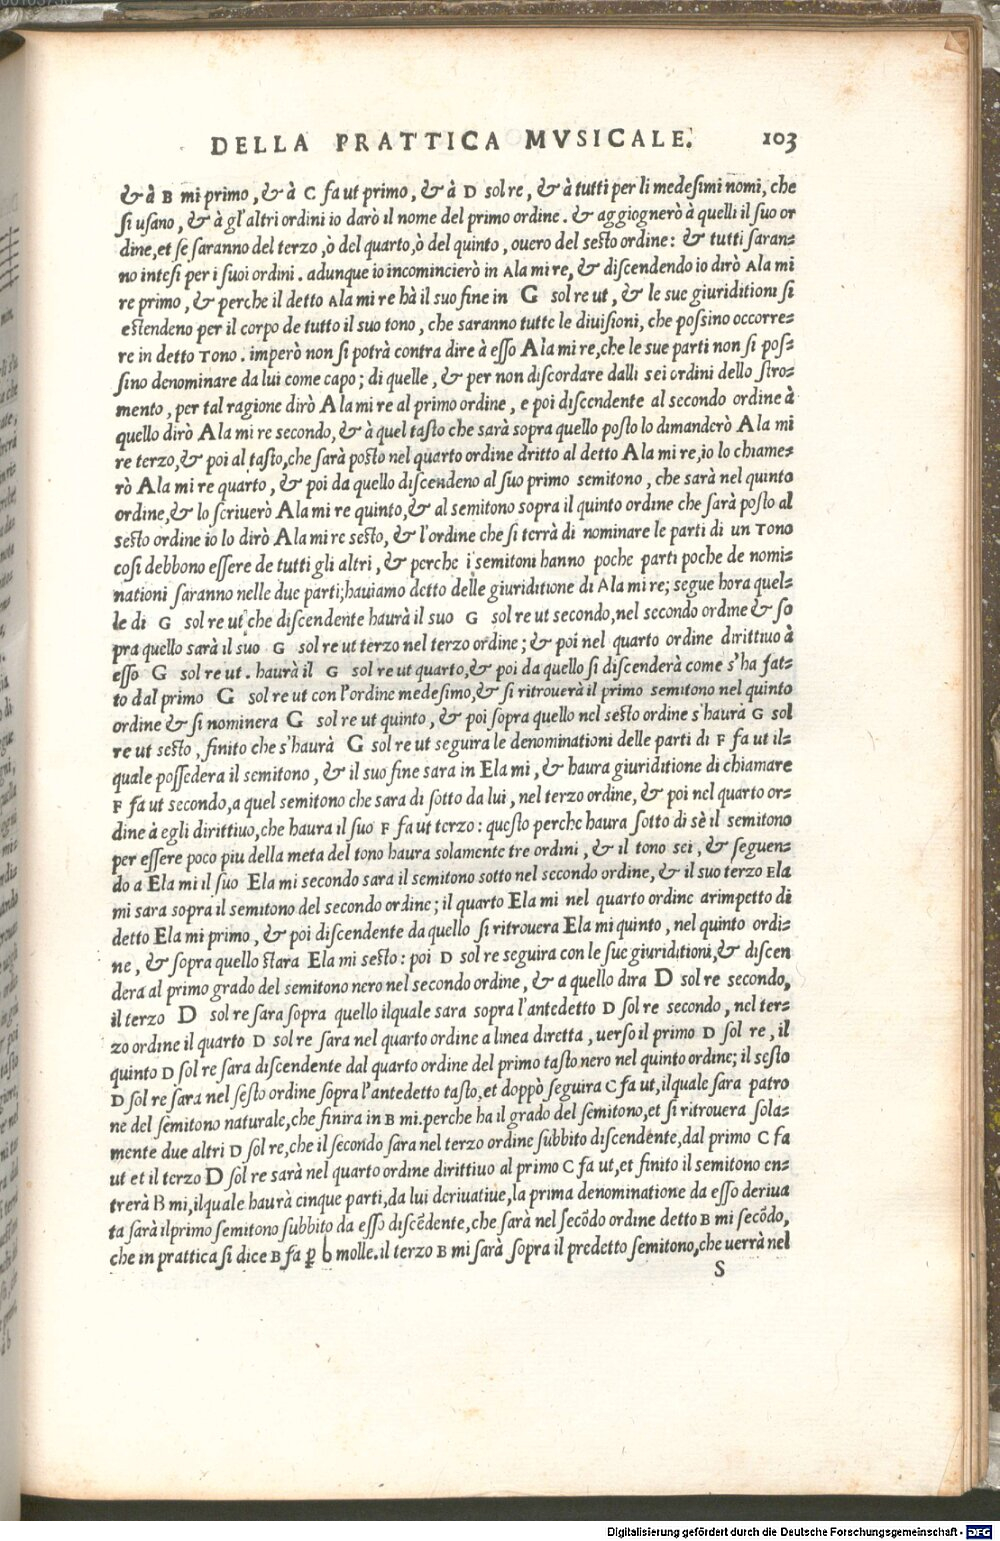 DELLA PRATTICA MVSICALE. 103
& à B mi primo, & à C fa ut primo, & à D sol re, & à tutti per li medesimi nomi, che
si usano, & à gl'altri ordini io darò il nome del primo ordine. & aggiognerò à quelli il suo or
dine, et se saranno del terzo, ò del quarto, ò del quinto, ouero del sesto ordine: & tutti saran=
no intesi per i suoi ordini. adunque io incomincierò in Ala mi re, & discendendo io dirò Ala mi
re primo, & perche il detto Ala mi re hà il suo fine in G sol re ut, & le sue giuriditioni si
estendeno per il corpo de tutto il suo tono, che saranno tutte le diuisioni, che possino occorre=
re in detto Tono. imperò non si potrà contra dire à esso Ala mi re, che le sue parti non si pos=
sino denominare da lui come capo; di quelle, & per non discordare dalli sei ordini dello stro=
mento, per tal ragione dirò Ala mi re al primo ordine, e poi discendente al secondo ordine à
quello dirò Ala mi re secondo, & à quel tasto che sarà sopra quello posto lo dimanderò Ala mi
re terzo, & poi al tasto, che sarà posto nel quarto ordine dritto al detto Ala mi re, io lo chiame=
rò Ala mi re quarto, & poi da quello discendeno al suo primo semitono, che sarà nel quinto
ordine, & lo scriuerò Ala mi re quinto, & al semitono sopra il quinto ordine che sarà posto al
sesto ordine io lo dirò Ala mi re sesto, & l'ordine che si terrà di nominare le parti di un Tono
cosi debbono essere de tutti gli altri, & perche i semitoni hanno poche parti poche de nomi=
nationi saranno nelle due parti; hauiamo detto delle giuriditione di Ala mi re; segue hora quel=
le di G sol re ut che discendente haurà il suo G sol re ut secondo, nel secondo ordine & so
pra quello sarà il suo G sol re ut terzo nel terzo ordine; & poi nel quarto ordine dirittiuo à
esso G sol re ut. haurà il G sol re ut quarto, & poi da quello si discenderà come s'ha fat=
to dal primo G sol re ut con l'ordine medesimo, & si ritrouerà il primo semitono nel quinto
ordine & si nominera G sol re ut quinto, & poi sopra quello nel sesto ordine s'haurà G sol
re ut sesto, finito che s'haurà G sol re ut seguira le denominationi delle parti di F fa ut il=
quale possedera il semitono, & il suo fine sara in Ela mi, & haura giuriditione di chiamare
F fa ut secondo, a quel semitono che sara di sotto da lui, nel terzo ordine, & poi nel quarto or=
dine à egli dirittiuo, che haura il suo F fa ut terzo: questo perche haura sotto di sè il semitono
per essere poco piu della meta del tono haura solamente tre ordini, & il tono sei, & seguen=
do a Ela mi il suo Ela mi secondo sara il semitono sotto nel secondo ordine, & il suo terzo Ela
mi sara sopra il semitono del secondo ordine; il quarto Ela mi nel quarto ordine arimpetto di
detto Ela mi primo, & poi discendente da quello si ritrouera Ela mi quinto, nel quinto ordi=
ne, & sopra quello stara Ela mi sesto: poi D sol re seguira con le sue giuriditioni, & discen
dera al primo grado del semitono nero nel secondo ordine, & a quello dira D sol re secondo,
il terzo D sol re sara sopra quello ilquale sara sopra l'antedetto D sol re secondo, nel ter=
zo ordine il quarto D sol re sara nel quarto ordine a linea diretta, uerso il primo D sol re, il
quinto D sol re sara discendente dal quarto ordine del primo tasto nero nel quinto ordine; il sesto
D sol re sara nel sesto ordine sopra l'antedetto tasto, et doppò seguira C fa ut, ilquale sara patro
ne del semitono naturale, che finira in B mi. perche ha il grado del semitono, et si ritrouera sola=
mente due altri D sol re, che il secondo sara nel terzo ordine subbito discendente, dal primo C fa
ut et il terzo D sol re sarà nel quarto ordine dirittiuo al primo C fa ut, et finito il semitono en=
trerà B mi, ilquale haurà cinque parti, da lui deriuatiue, la prima denominatione da esso deriua
ta sarà il primo semitono subbito da esso discēdente, che sarà nel secōdo ordine detto B mi secōdo,
che in prattica si dice B fa ꝑ b molle. il terzo B mi sarà sopra il predetto semitono, che uerrà nel
S
Digitalisierung gefördert durch die Deutsche Forschungsgemeinschaft - DFG